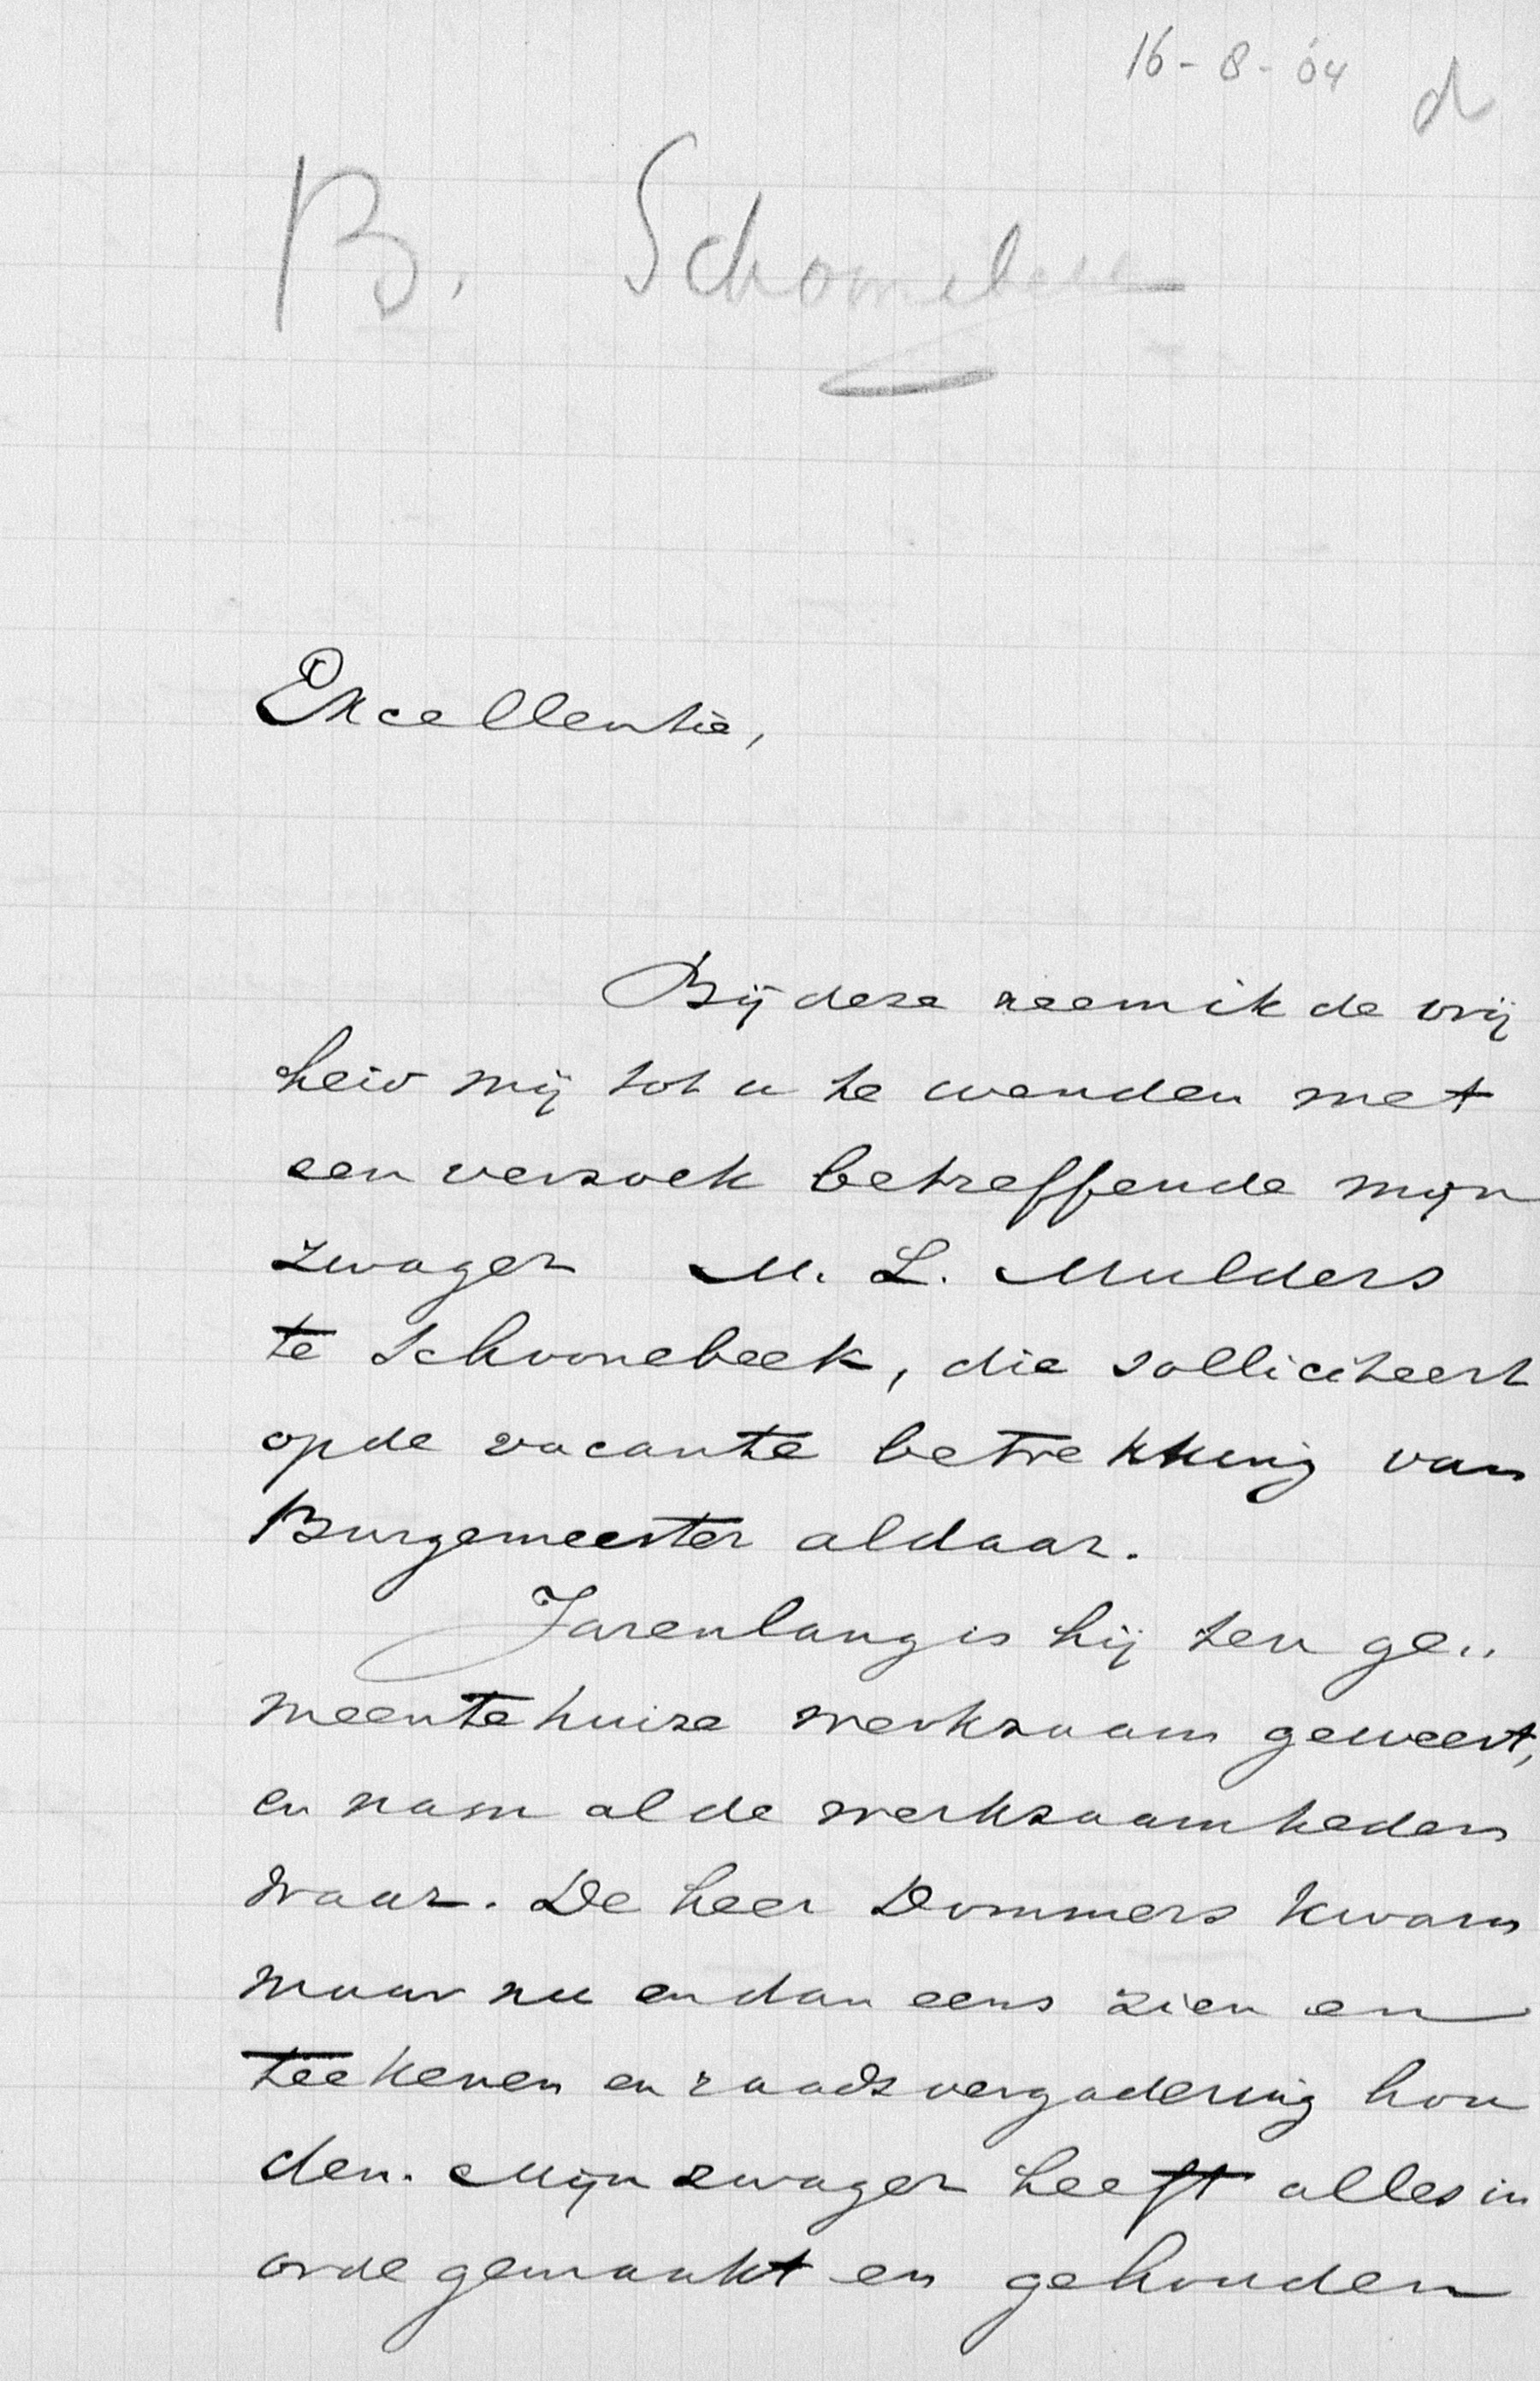 16-8-04 d
B.
Excellentie,
Bij deze neem ik de vrij
heid mij tot u te wenden met
een verzoek betreffende mijn
zwager M. L. Mulders
te Schoonebeek, die solliciteert
op de vacante betrekking van
Burgemeester aldaar.
Jarenlang is hij ten ge„
meentehuize werkzaam geweest,
en nam al de werkzaamheden
waar. De heer Dommers kwam
maar nu en dan eens zien en
teekenen en raadsvergadering hou
den. Mijn zwager heeft alles in
orde gemaakt en gehouden